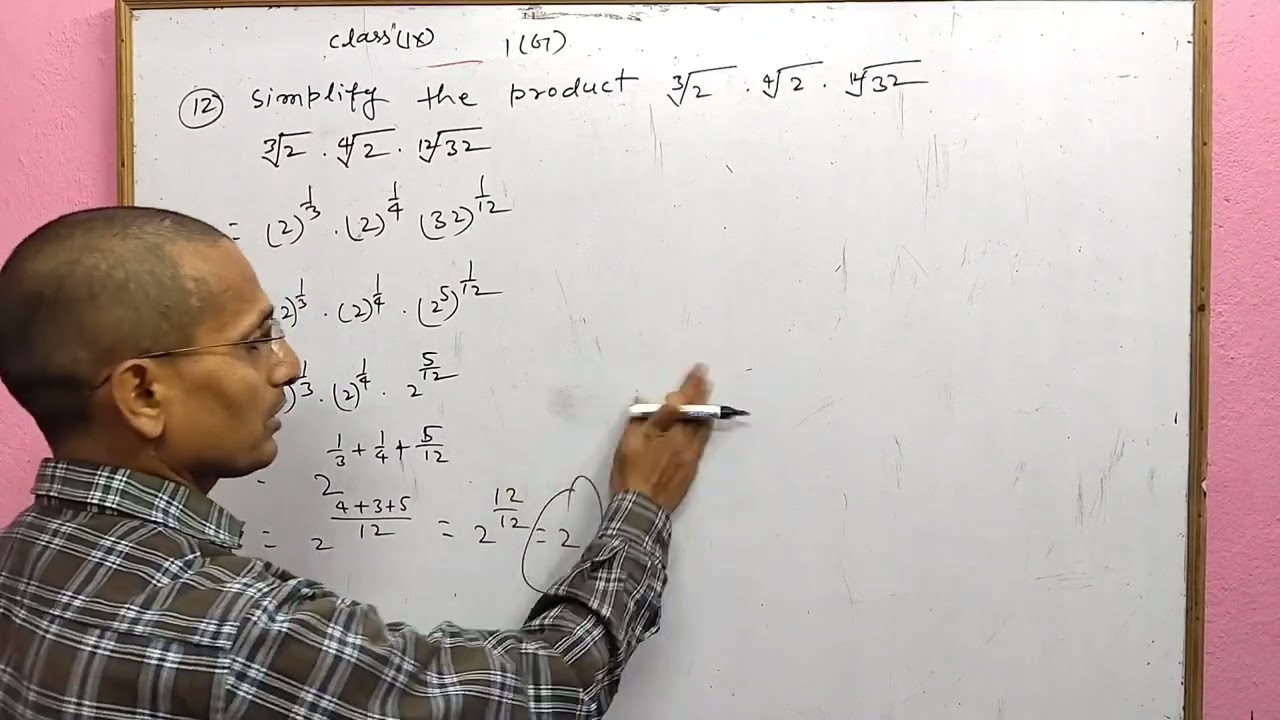 class "(IX) 1(G)
(12) simplify the product ∛2 . ∜2 . ¹⁴√32
∛2 . ∜2 . ¹²√32
= (2)^(1/3) . (2)^(1/4) (32)^(1/12)
2)^(1/3) . (2)^(1/4) . (2^5)^(1/12)
)^(1/3) . (2)^(1/4) . 2^(5/12)
2^(1/3 + 1/4 + 5/12)
= 2^((4+3+5)/12) = 2^(12/12) = 2^1